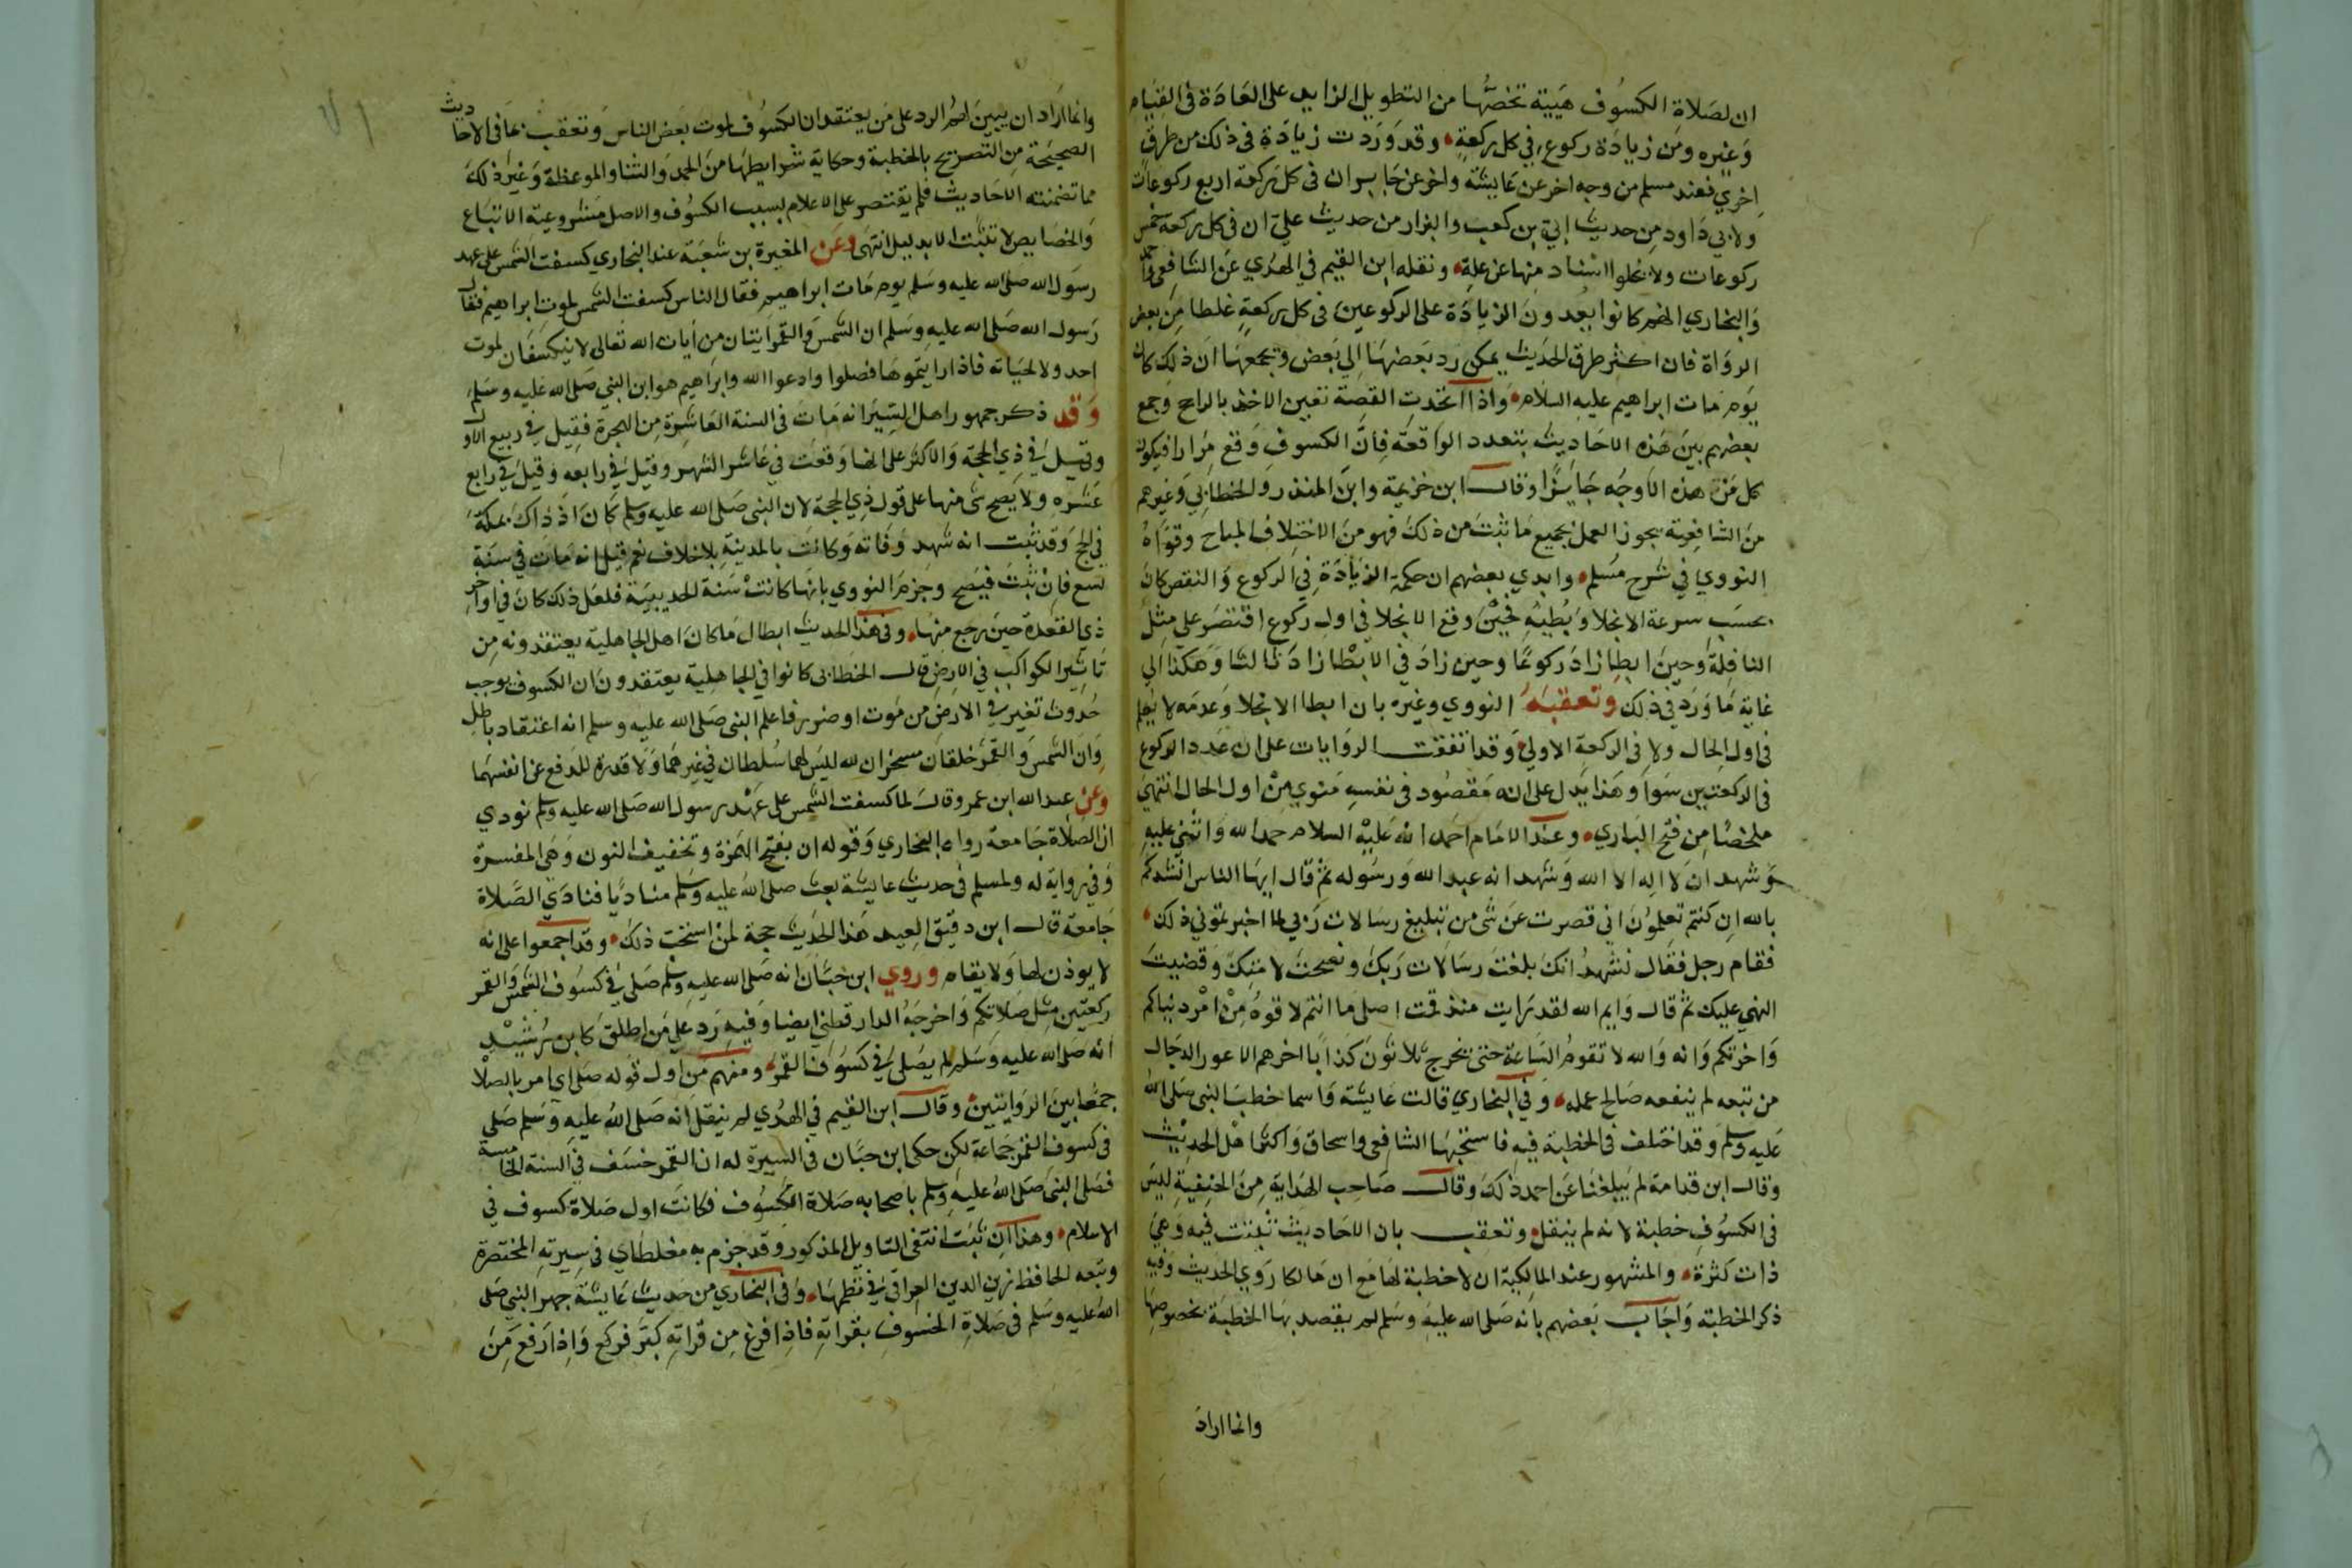 ان لصلاة الكسوف هيية تخصها من التطويل الزايد على العادة في القيام
وغيره ومن زيادة ركوع في كل ركعة وقد وردت زيادة في ذلك من طرق
اخري فعند مسلم من وجه اخر عن عايشة واخر عن جابر ان في كل ركعة اربع ركوعات
ولابي داود من حديث ابي بن كعب والبزار من حديث علي ان في كل ركعة خمس
ركوعات ولا تخلوا اسناد منها عن علة ونقله ابن القيم في الهدي عن الشافعي واحمد
والبخاري انهم كانوا يعدون الزيادة على الركوعين في كل ركعة غلطا من بعض
الرواة فان اكثر طرق الحديث يمكن رد بعضها الي بعض وتجمعها ان ذلك كان
يوم مات ابراهيم عليه السلام واذا اتحدت القصة تعين الاخذ بالراجح وجمع
بعضهم بين هذه الاحاديث بتعدد الواقعة فان الكسوف وقع مرارا فيكون
كل من هذه الاوجه جايزا وقال ابن خزيمة وابن المنذر والخطابي وغيرهم
من الشافعية يجوز العمل بجميع ما ثبت من ذلك فهو من الاختلاف المباح وقواه
النووي في شرح مسلم وابدي بعضهم ان حكمة الزيادة في الركوع والنقص كان
بحسب سرعة الانجلا وبطيه فحين وقع الانجلا في اول ركوع اقتصر على مثل
النافلة وحين ابطا زاد ركوعا وحين زاد في الابطا زاد ثالثا وهكذا الي
غاية ما ورد في ذلك وتعقبه النووي وغيره بان ابطا الانجلا وعدمه لا يعلم
في اول الحال ولا في الركعة الاولي وقد اتفقت الروايات على ان عدد الركوع
في الركعتين سوا وهذا يدل على انه مقصود في نفسه منوي من اول الحال انتهي
ملخصا من فتح الباري وعند الامام احمد انه عليه السلام حمد الله واثني عليه
وشهد ان لا اله الا الله وشهد انه عبد الله ورسوله ثم قال ايها الناس انشدكم
بالله ان كنتم تعلمون اني قصرت عن شي من تبليغ رسالات ربي لما اخبرتموني ذلك
فقام رجل فقال نشهد انك بلغت رسالات ربك ونصحت لامتك وقضيت
الذي عليك ثم قال وايم الله لقد رايت منذ قمت اصلي ما انتم لاقوه من امر دنياكم
واخرتكم وانه والله لا تقوم الساعة حتى يخرج ثلاثون كذابا اخرهم الاعور الدجال
من تبعه لم ينفعه صالح عمله وفي البخاري قالت عايشة واسما خطب النبي صلى الله
عليه وسلم وقد اختلف في الخطبة فيه فاستحبها الشافعي واسحاق واكثر اهل الحديث
وقال ابن قدامة لم يبلغنا عن احمد ذلك وقال صاحب الهداية من الحنفية ليس
في الكسوف خطبة لانه لم ينقل وتعقب بان الاحاديث ثبتت فيه وهي
ذات كثرة والمشهور عند المالكية ان لا خطبة لها مع ان مالكا روي الحديث وفيه
ذكر الخطبة واجاب بعضهم بانه صلى الله عليه وسلم لم يقصد بها الخطبة بخصوصها
وانما اراد
وانما اراد ان يبين لهم الرد على من يعتقد ان الكسوف لموت بعض الناس وتعقب بما في الاحاديث
الصحيحة من التصريح بالخطبة وحكاية شرايطها من الحمد والثنا والموعظة وغير ذلك
مما تضمنته الاحاديث فلم يقتصر على الاعلام بسبب الكسوف والاصل مشروعية الاتباع
والخصايص لا تثبت الا بدليل انتهى وعن المغيرة بن شعبة عند البخاري كسفت الشمس على عهد
رسول الله صلى الله عليه وسلم يوم مات ابراهيم فقال الناس كسفت الشمس لموت ابراهيم فقال
رسول الله صلى الله عليه وسلم ان الشمس والقمر ايتان من ايات الله تعالى لا ينكسفان لموت
احد ولا لحياته فاذا رايتموها فصلوا وادعوا الله وابراهيم هو ابن النبي صلى الله عليه وسلم
وقد ذكر جمهور اهل السير انه مات في السنة العاشرة من الهجرة فقيل في ربيع الاول
وقيل في ذي الحجة والاكثر على انها وقعت في عاشر الشهر وقيل في رابعه وقيل في رابع
عشره ولا يصح شي منها على قول ذي الحجة لان النبي صلى الله عليه وسلم كان اذ ذاك بمكة
في الحج وقد ثبت انه شهد وفاته وكانت بالمدينة بلا خلاف نعم قيل انه مات في سنة
تسع فان ثبت فيصح وجزم النووي بانها كانت سنة الحديبية فلعل ذلك كان في اواخر
ذي القعدة حين رجع منها وفي هذا الحديث ابطال ما كان اهل الجاهلية يعتقدونه من
تاثير الكواكب في الارض قال الخطابي كانوا في الجاهلية يعتقدون ان الكسوف يوجب
حدوث تغير في الارض من موت او ضرر فاعلم النبي صلى الله عليه وسلم انه اعتقاد باطل
وان الشمس والقمر خلقان مسخران لله ليس لهما سلطان في غيرهما ولا قدرة للدفع عن انفسهما
وعن عبد الله ابن عمرو قال لما كسفت الشمس على عهد رسول الله صلى الله عليه وسلم نودي
ان الصلاة جامعة رواه البخاري وقوله ان بفتح الهمزة وتخفيف النون وهي المفسرة
وفي رواية له ولمسلم في حديث عايشة بعث صلى الله عليه وسلم مناديا فنادي الصلاة
جامعة قال ابن دقيق العيد هذا الحديث حجة لمن استحب ذلك وقد اجمعوا على انه
لا يوذن لها ولا يقام وروي ابن حبان انه صلى الله عليه وسلم صلى في كسوف الشمس والقمر
ركعتين مثل صلاتكم واخرجه الدارقطني ايضا وفيه رد على من اطلق كابن رشيد
انه صلى الله عليه وسلم لم يصلي في كسوف القمر ومنهم من اول قوله صلى اي امر بالصلاة
جمعا بين الروايتين وقال ابن القيم في الهدي لم ينقل انه صلى الله عليه وسلم صلى
في كسوف القمر جماعة لكن حكى ابن حبان في السيرة له ان القمر خسف في السنة الخامسة
فصلى النبي صلى الله عليه وسلم باصحابه صلاة الكسوف فكانت اول صلاة كسوف في
الاسلام وهذا ان ثبت انتفى التاويل المذكور وقد جزم به مغلطاي في سيرته المختصرة
وتبعه الحافظ زين الدين العراقي في نظمها وفي البخاري من حديث عايشة جهر النبي صلى
الله عليه وسلم في صلاة الخسوف بقراته فاذا فرغ من قراته كبر فركع واذا رفع من